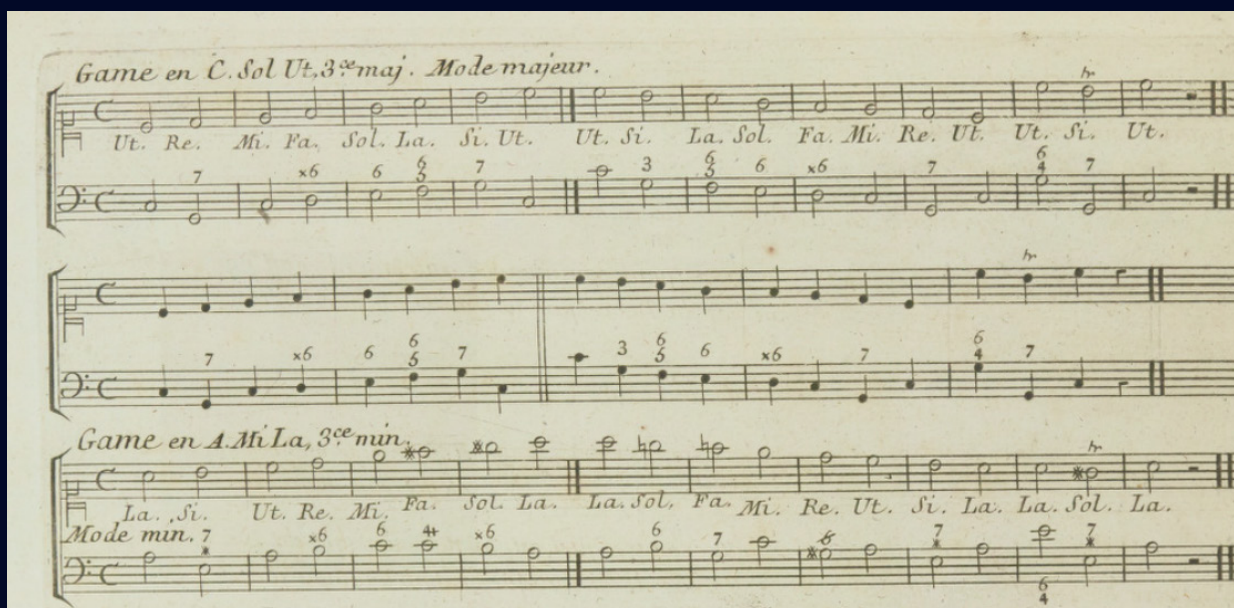 Game en C. Sol Ut, 3.ce maj. Mode majeur.
Ut. Re. Mi. Fa. Sol. La. Si. Ut. Ut. Si. La. Sol. Fa. Mi. Re. Ut. Ut. Si. Ut.
7 x6 6 6 5 7 3 6 5 6 x6 7 6 4 7
7 x6 6 6 5 7 3 6 5 6 x6 7 6 4 7
Game en A. Mi La, 3.ce min.
La. Si. Ut. Re. Mi. Fa. Sol. La. La. Sol. Fa. Mi. Re. Ut. Si. La. La. Sol. La.
Mode min. 7 x6 6 4+ x6 6 7 6 7 7
6 4